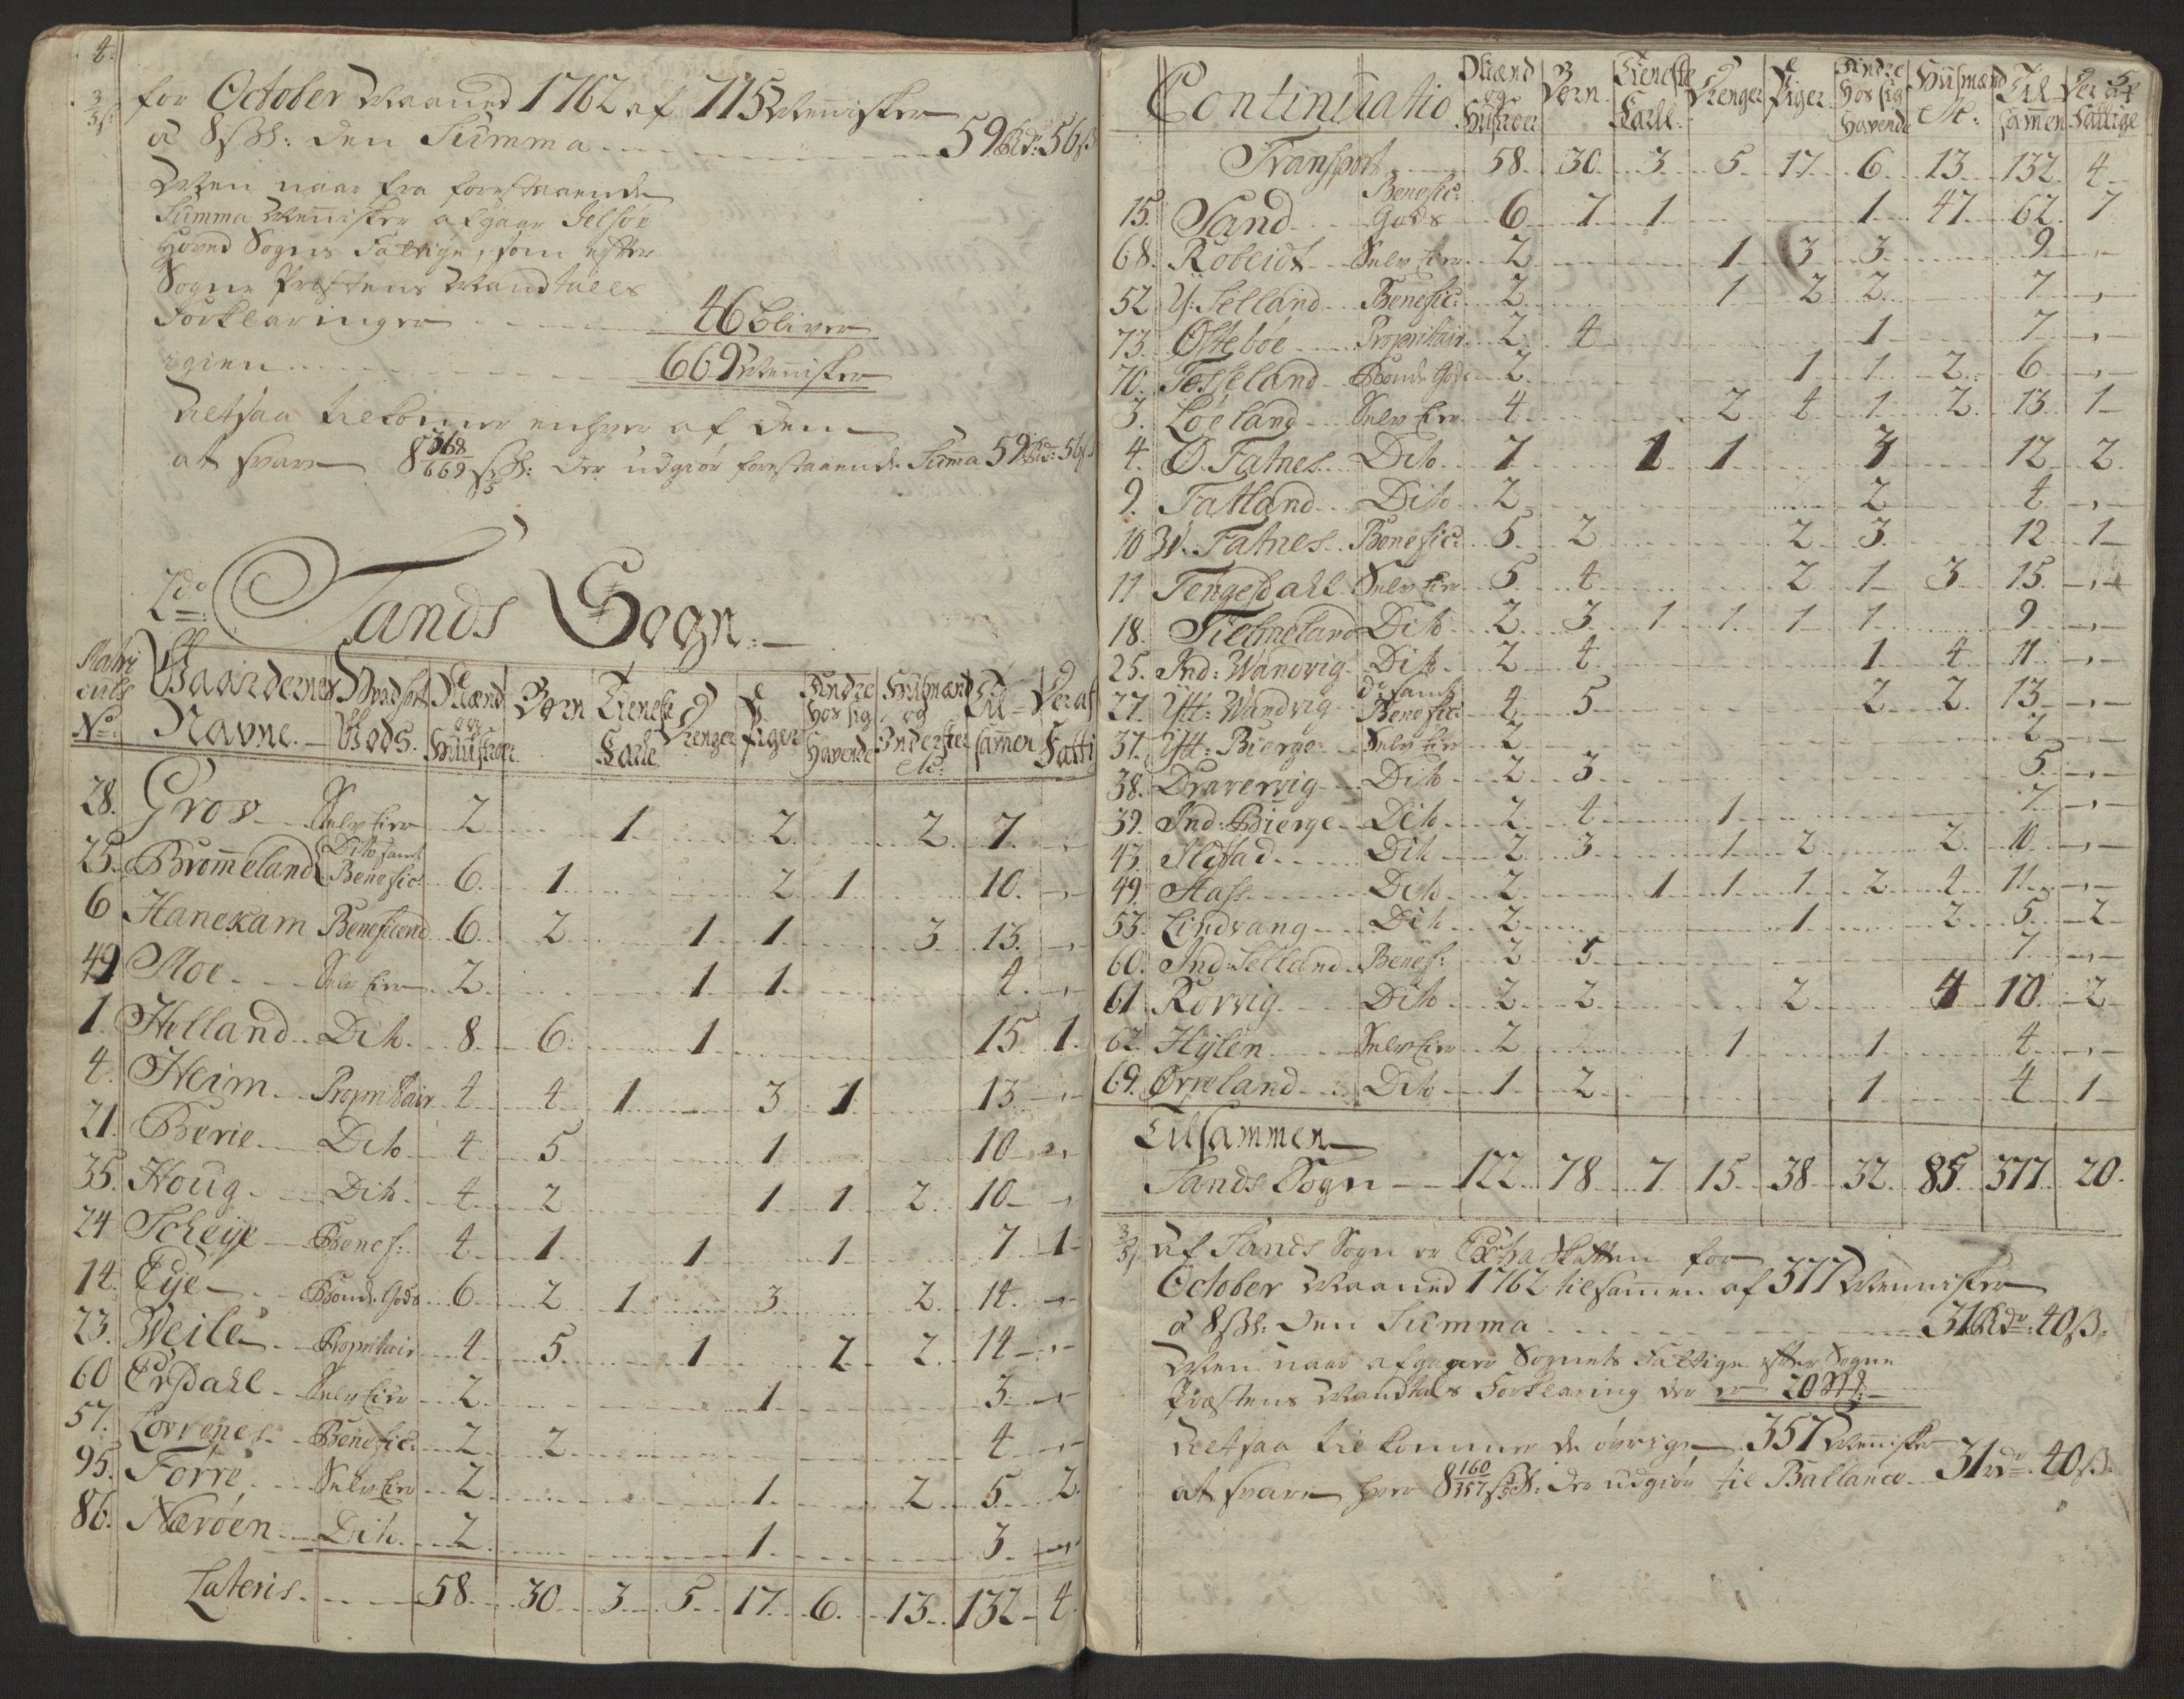 4.
for October Maaned 1762 af 715 Mennisker
a 8 sk: den Summa 59 Rdr: 56 s
Men naar fra forestaaende
Summa Mennisker afgaar Jelsøe
Hoved Sogns Fattige, som efter
Sogne Præstens Mandtalls
Forklaringer 46 bliver
igien 669 Mennisker
Altsaa tilkommer enhver af dem
at svare 8 368/669 sk: der udgiør forestaaende Summa 59 Rdr: 56 s
2do: Sands Sogn.
Matriculs No. Gaardernes Navne. Hvad Gods. Mænd og Hustroer Børn Tieneste Karle Drenger Piger Andre hos sig havende Husmænd og Inderster etc: Tilsammen Deraf Fatti
28. Grov Selv Eier 2 1 2 2 7 -
25. Brommeland Dito samt Benefic: 6 1 2 1 10 -
6 Hanekam Beneficend 6 2 1 1 3 13 -
49 Moe Selv Eier 2 1 1 4 -
1. Helland Dito 8 6 1 15 1
4. Heim Propritair 4 4 1 3 1 13 -
21. Berie Dito 4 5 1 10 -
35. Houg Dito 4 2 1 1 2 10 -
24 Scheije Benef: 4 1 1 1 7 1
14. Eije Bonde Gods 6 2 1 3 2 14 -
23. Weile Propritair 4 5 1 2 2 14 -
60 Ersdahl Selv Eier 2 1 3 -
57. Lovrenes Benefic: 2 2 4 -
95. Førre Selv Eier 2 1 2 5 2
86. Nærøen Dito 2 1 3 -
Lateris 58 30 3 5 17 6 13 132 4
5.
Continuatio Mænd og Hustroer Børn Tieneste Karle Drenger Piger Andre hos sig havende Husmænd etc: Tilsammen Deraf Fattige
Transport 58 30 3 5 17 6 13 132 4
15. Sand Benefic: Gods 6 7 1 1 47 62 7
68. Robeidt Selv Eier 2 1 3 3 9 -
52 Y: Selland Benefic: 2 1 2 2 7 -
73. Østebøe Propritair 2 4 1 7 -
70. Tesseland Bonde Gods 2 1 1 2 6 -
3. Løeland Selv Eier 4 2 4 1 2 13 1
4. O. Fatnes Dito 7 1 1 3 12 2
9. Fatland Dito 2 2 4 -
10 W. Fatnes Benefic: 5 2 2 3 12 1
11 Tengesdall Selv Eier 5 4 2 1 3 15 -
18. Tielmeland Dito 2 3 1 1 1 1 9 -
25. Ind: Wandvig Dito 2 4 1 4 11 -
27. Ytt: Wandvig do samt Benefic: 4 5 2 2 13 -
37. Ytt: Bierge Selv Eier 2 2 -
38. Dravervig Dito 2 3 5 -
39. Ind: Bierge Dito 2 4 1 7 -
43. Mostad Dito 2 3 1 2 2 10 -
49. Hass Dito 2 1 1 1 2 4 11 -
53. Lindvang Dito 2 1 2 5 2
60. Ind: Selland Benef: 2 5 7 -
61 Rørvig Dito 2 2 2 4 10 2
62. Hylen Selv Eier 2 1 1 4 -
69. Ørreland Dito 1 2 1 4 1
Tilsammen
Sands Sogn 122 78 7 15 38 32 85 377 20.
Af Sands Sogn er Extra Skatten for
October Maaned 1762 tilsammen af 377 Mennisker
a 8 sk: den Summa 31 Rdr: 40 s.
Men naar afgaaer Sognets Fattige efter Sogne
Præstens Mandtals Forklaring der er 20 st:
Altsaa tilkommer de øvrige 357 Mennisker
at svare hver 8 160/357 sk: der udgiør til Ballance 31 Rdr: 40 s.